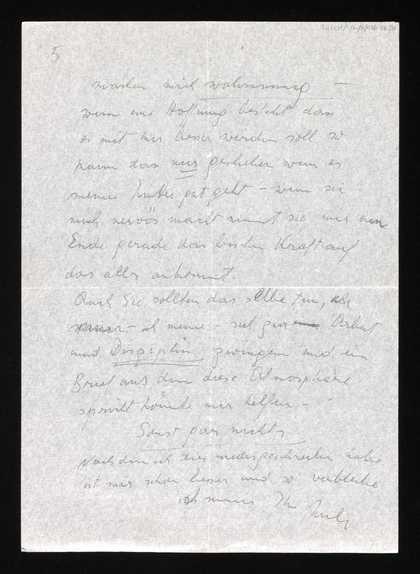 5
machen mich wahnsinnig –
wenn eine Hoffnung besteht dass
es mit mir besser werden soll so
kann das nur geschehen wenn es
meiner Mutter gut geht – wenn sie
mich nervös macht nimmt sie mir am
Ende gerade das bischen Kraft auf
das alles ankommt.
Auch Sie sollten das selbe tun,
ich meine – sich zur Arbeit
und Disziplin zwingen und ein
Brief aus dem diese Atmosphäre
spricht könnte mir helfen –
Sonst gar nichts
Nachdem ich dies niedergeschrieben habe
ist mir schon besser und so verbleibe
ich Ihr